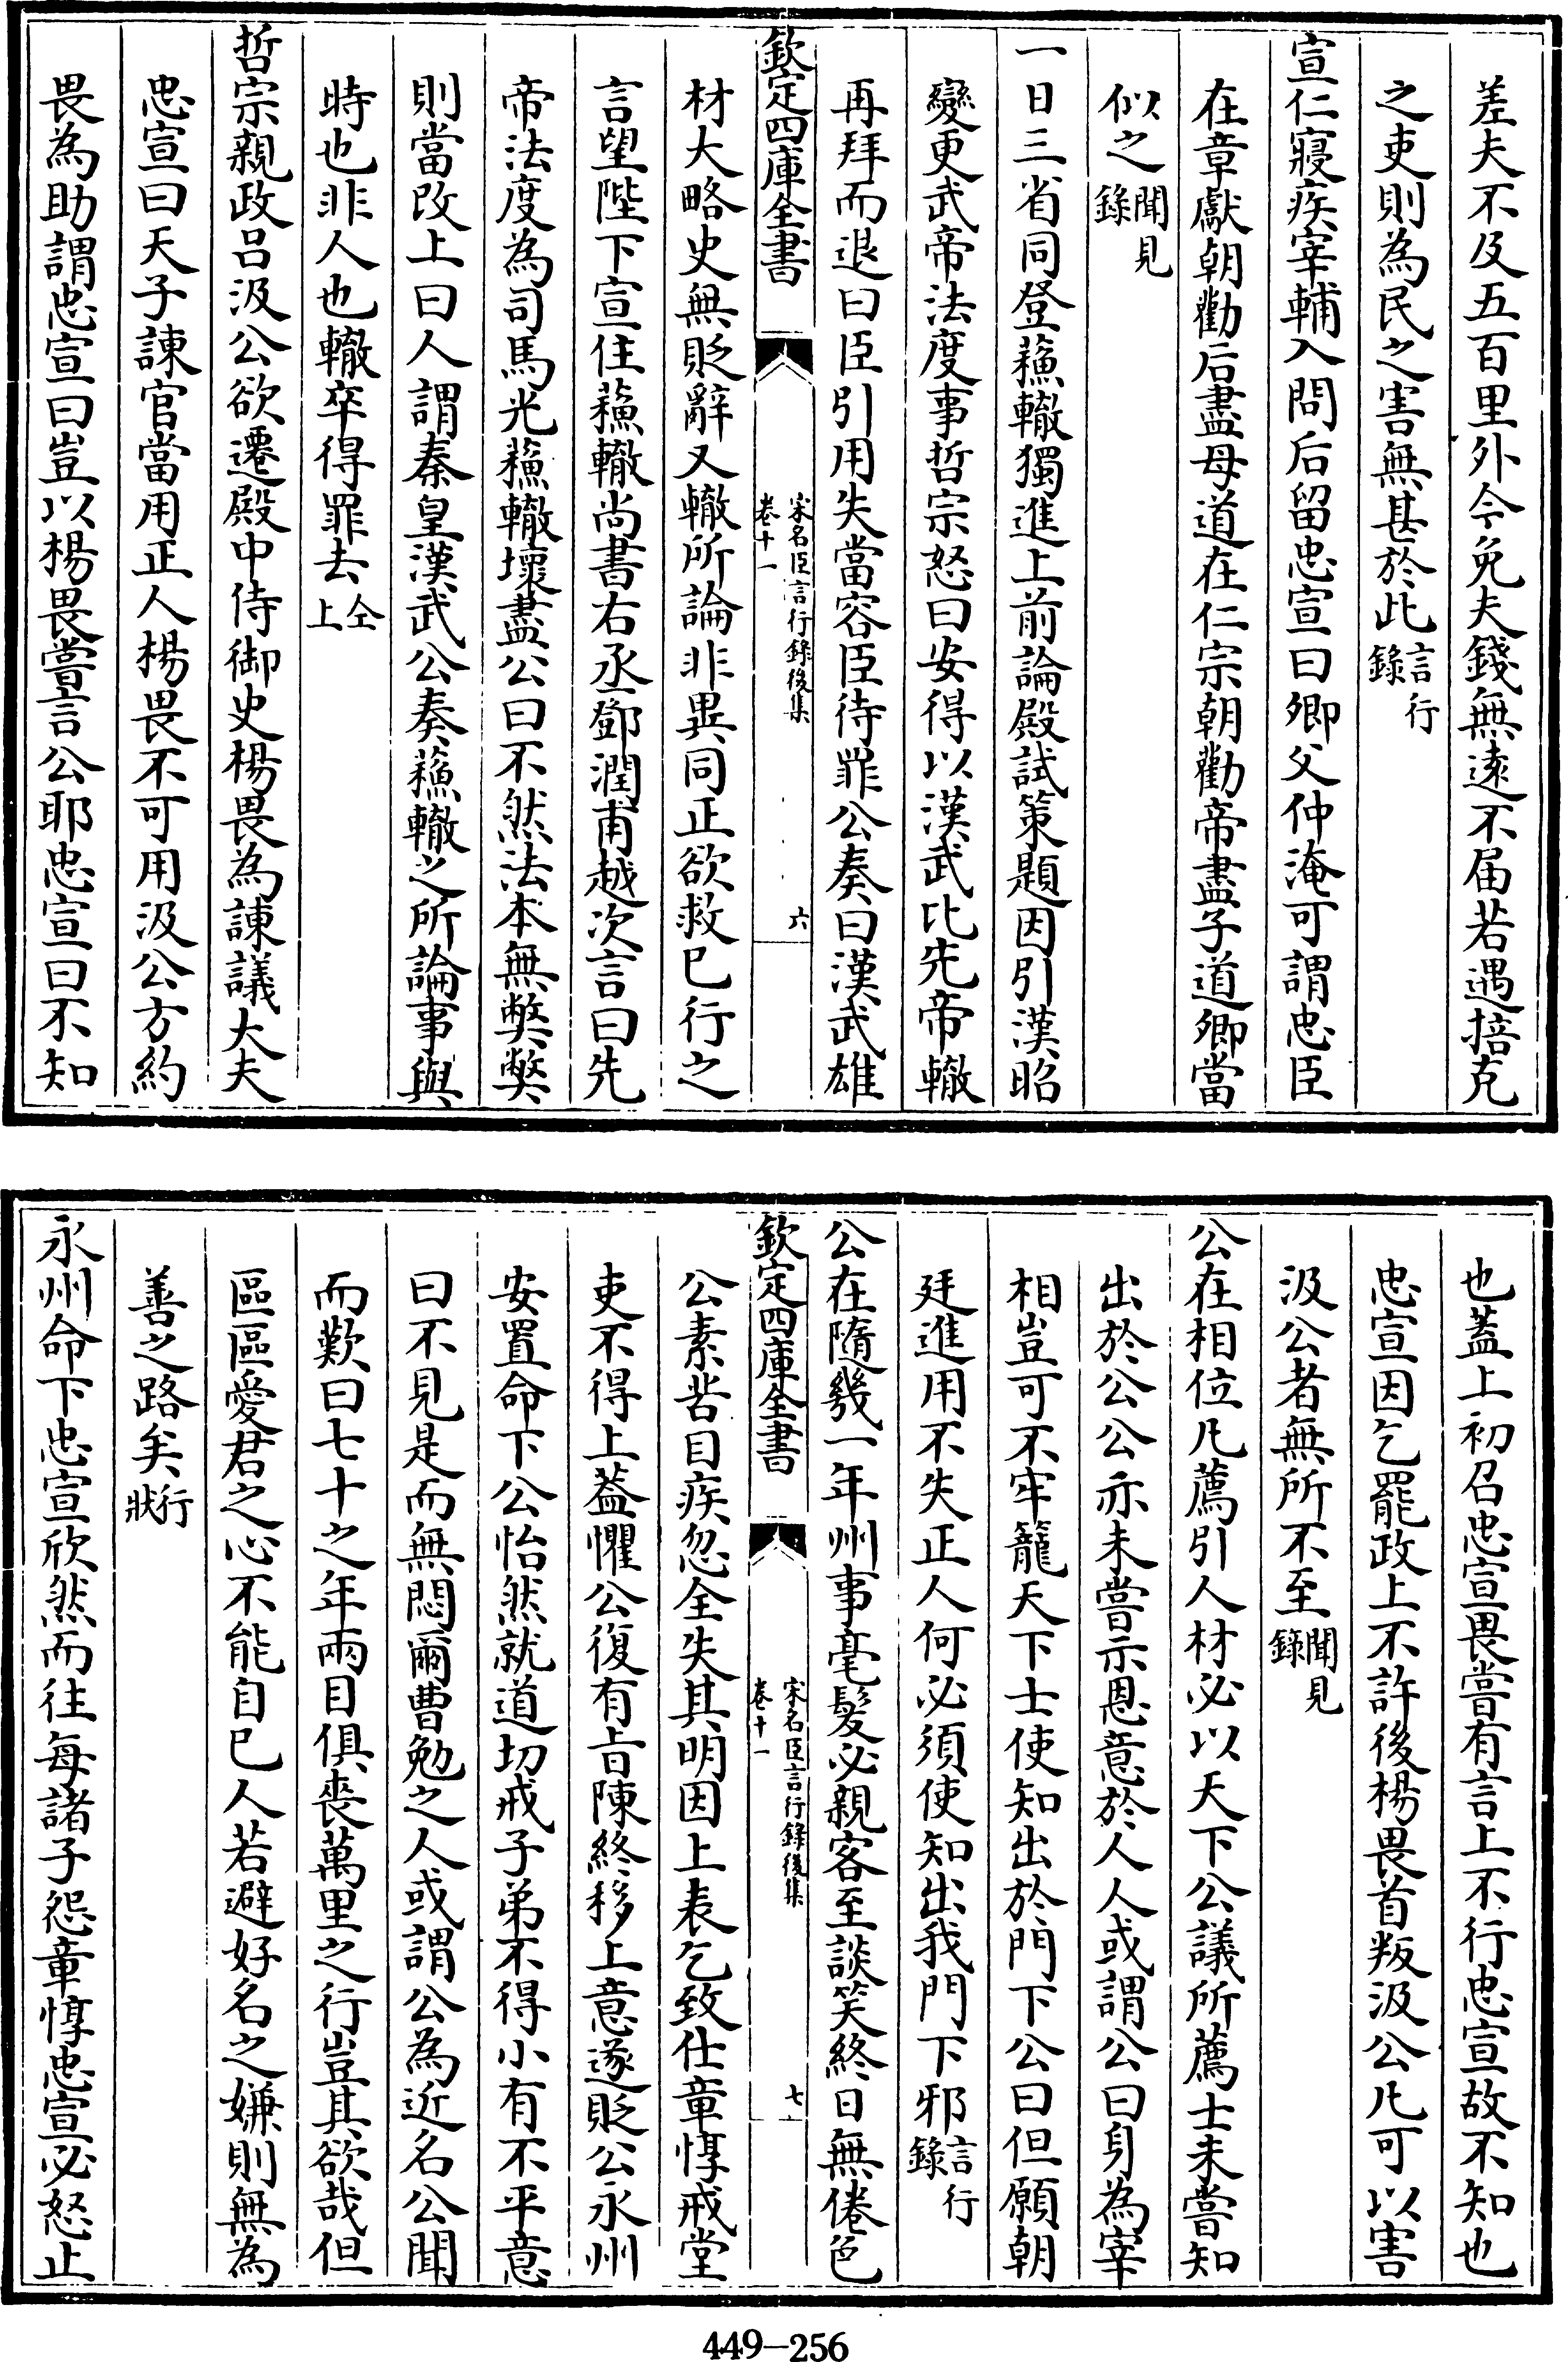 差夫不及五百里外今免夫錢無遠不届若遇掊克
之吏則為民之害無甚於此言行錄
宣仁寢疾宰輔入問后留忠宣曰卿父仲淹可謂忠臣
在章獻朝勸后盡母道在仁宗朝勸帝盡子道卿當
似之聞見錄
一日三省同登蘓轍獨進上前論殿試策題因引漢昭
變更武帝法度事哲宗怒曰安得以漢武比先帝轍
再拜而退曰臣引用失當容臣待罪公奏曰漢武雄
欽定四庫全書 宋名臣言行錄後集 卷十一 六
材大略史無貶辭又轍所論非異同正欲救已行之
言望陛下宣住蘓轍尚書右丞鄧潤甫越次言曰先
帝法度為司馬光蘓轍壞盡公曰不然法本無弊弊
則當改上曰人謂秦皇漢武公奏蘓轍之所論事與
時也非人也轍卒得罪去仝上
哲宗親政呂汲公欲遷殿中侍御史楊畏為諫議大夫
忠宣曰天子諫官當用正人楊畏不可用汲公方約
畏為助謂忠宣曰豈以楊畏嘗言公耶忠宣曰不知
也蓋上初召忠宣畏嘗有言上不行忠宣故不知也
忠宣因乞罷政上不許後楊畏首叛汲公凡可以害
汲公者無所不至聞見錄
公在相位凡薦引人材必以天下公議所薦士未嘗知
出於公公亦未嘗示恩意於人人或謂公曰身為宰
相豈可不牢籠天下士使知出於門下公曰但願朝
廷進用不失正人何必須使知出我門下邪言行錄
公在隨幾一年州事毫髮必親客至談笑終日無倦色
欽定四庫全書 宋名臣言行錄後集 卷十一 七
公素苦目疾忽全失其明因上表乞致仕章惇戒堂
吏不得上蓋懼公復有旨陳終移上意遂貶公永州
安置命下公怡然就道切戒子弟不得小有不平意
曰不見是而無悶爾曹勉之人或謂公為近名公聞
而歎曰七十之年兩目俱喪萬里之行豈其欲哉但
區區愛君之心不能自已人若避好名之嫌則無為
善之路矣行狀
永州命下忠宣欣然而往每諸子怨章惇忠宣必怒止
449-256